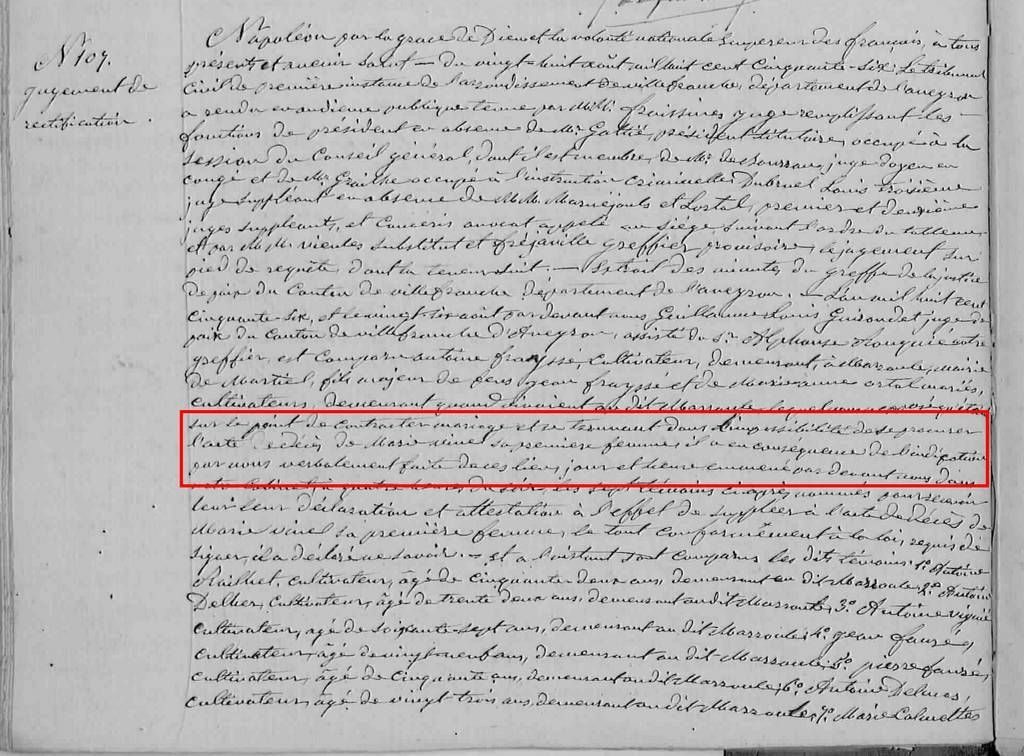 N° 107.
jugement de
rectification.
Napoléon par la grace de Dieu et la volonté nationale Empereur des français, à tous
présents et avenir salut — du vingt-huit août mil huit cent cinquante-six Le tribunal
Civil de première instance de l'arrondissement de villefranche, département de l'aveyron
a rendu en audience publique tenue par M.M. fraissines juge remplissant les
fonctions de président en absence de Mr. Galtié, président titulaire, occupé à la
session du Conseil général, dont il est membre, de Mr. juge doyen en
congé et de Mr. occupé à l'instruction criminelle, Dubruel Louis troisième
juge suppléant en absence de M.M. Maruéjouls et Lortal, premier et deuxième
juges suppléants, et avant appelé au siège suivant l'ordre du tableau
et par M.M. substitut et fréjaville greffier provisoire, le jugement sur
pied de requête, dont la teneur suit. — Extrait des minutes du greffe de la justice
de paix du Canton de villefranche département de l'aveyron. — L'an mil huit cent
cinquante-six, et le vingt-six août par devant nous Guillaume Louis Guirondet juge de
paix du Canton de villefranche d'Aveyron, assisté du Sr. Alphonse notre
greffier, est comparu antoine fraysse, cultivateur, demeurant, à Marroule, Mairie
de Martiel, fils majeur de feus jean fraysse et de Marie-anne ortal mariés,
cultivateurs, demeurant quand vivaient au dit Marroule, lequel nous a exposé qu'étant
sur le point de contracter mariage et se trouvant dans l'impossibilité de se procurer
l'acte de décès de Marie vinel sa première femme, il a en conséquence de l'indication
par nous verbalement faite de ces lieu, jour et heure emmené par devant nous dans
notre cabinet, à quatre heures du soir, les sept témoins ci-après nommés pour recevoir
leur déclaration et attestation à l'effet de suppléer à l'acte de décès de
Marie vinel sa première femme, le tout conformément à la loi, requis de
signer, il a déclaré ne savoir. — et à l'instant sont comparus les dits témoins 1° Antoine
cultivateur, âgé de cinquante deux ans, demeurant au dit Marroule, 2° Antoine
Delher, cultivateur, âgé de trente deux ans, demeurant au dit Marroule, 3° Antoine vignié
cultivateur, âgé de soixante-sept ans, demeurant au dit Marroule, 4° jean fauré,
cultivateur, âgé de vingt neuf ans, demeurant au dit Marroule, 5° pierre fauré,
cultivateur, âgé de cinquante ans, demeurant au dit Marroule, 6° Antoine Delmas,
cultivateur, âgé de vingt trois ans, demeurant au dit Marroule, 7° Marie Calmettes